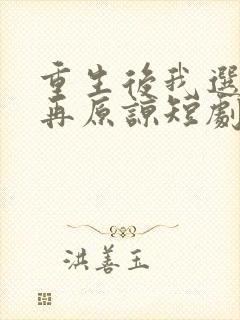 重生後我選
再原諒短劇
洪善玉